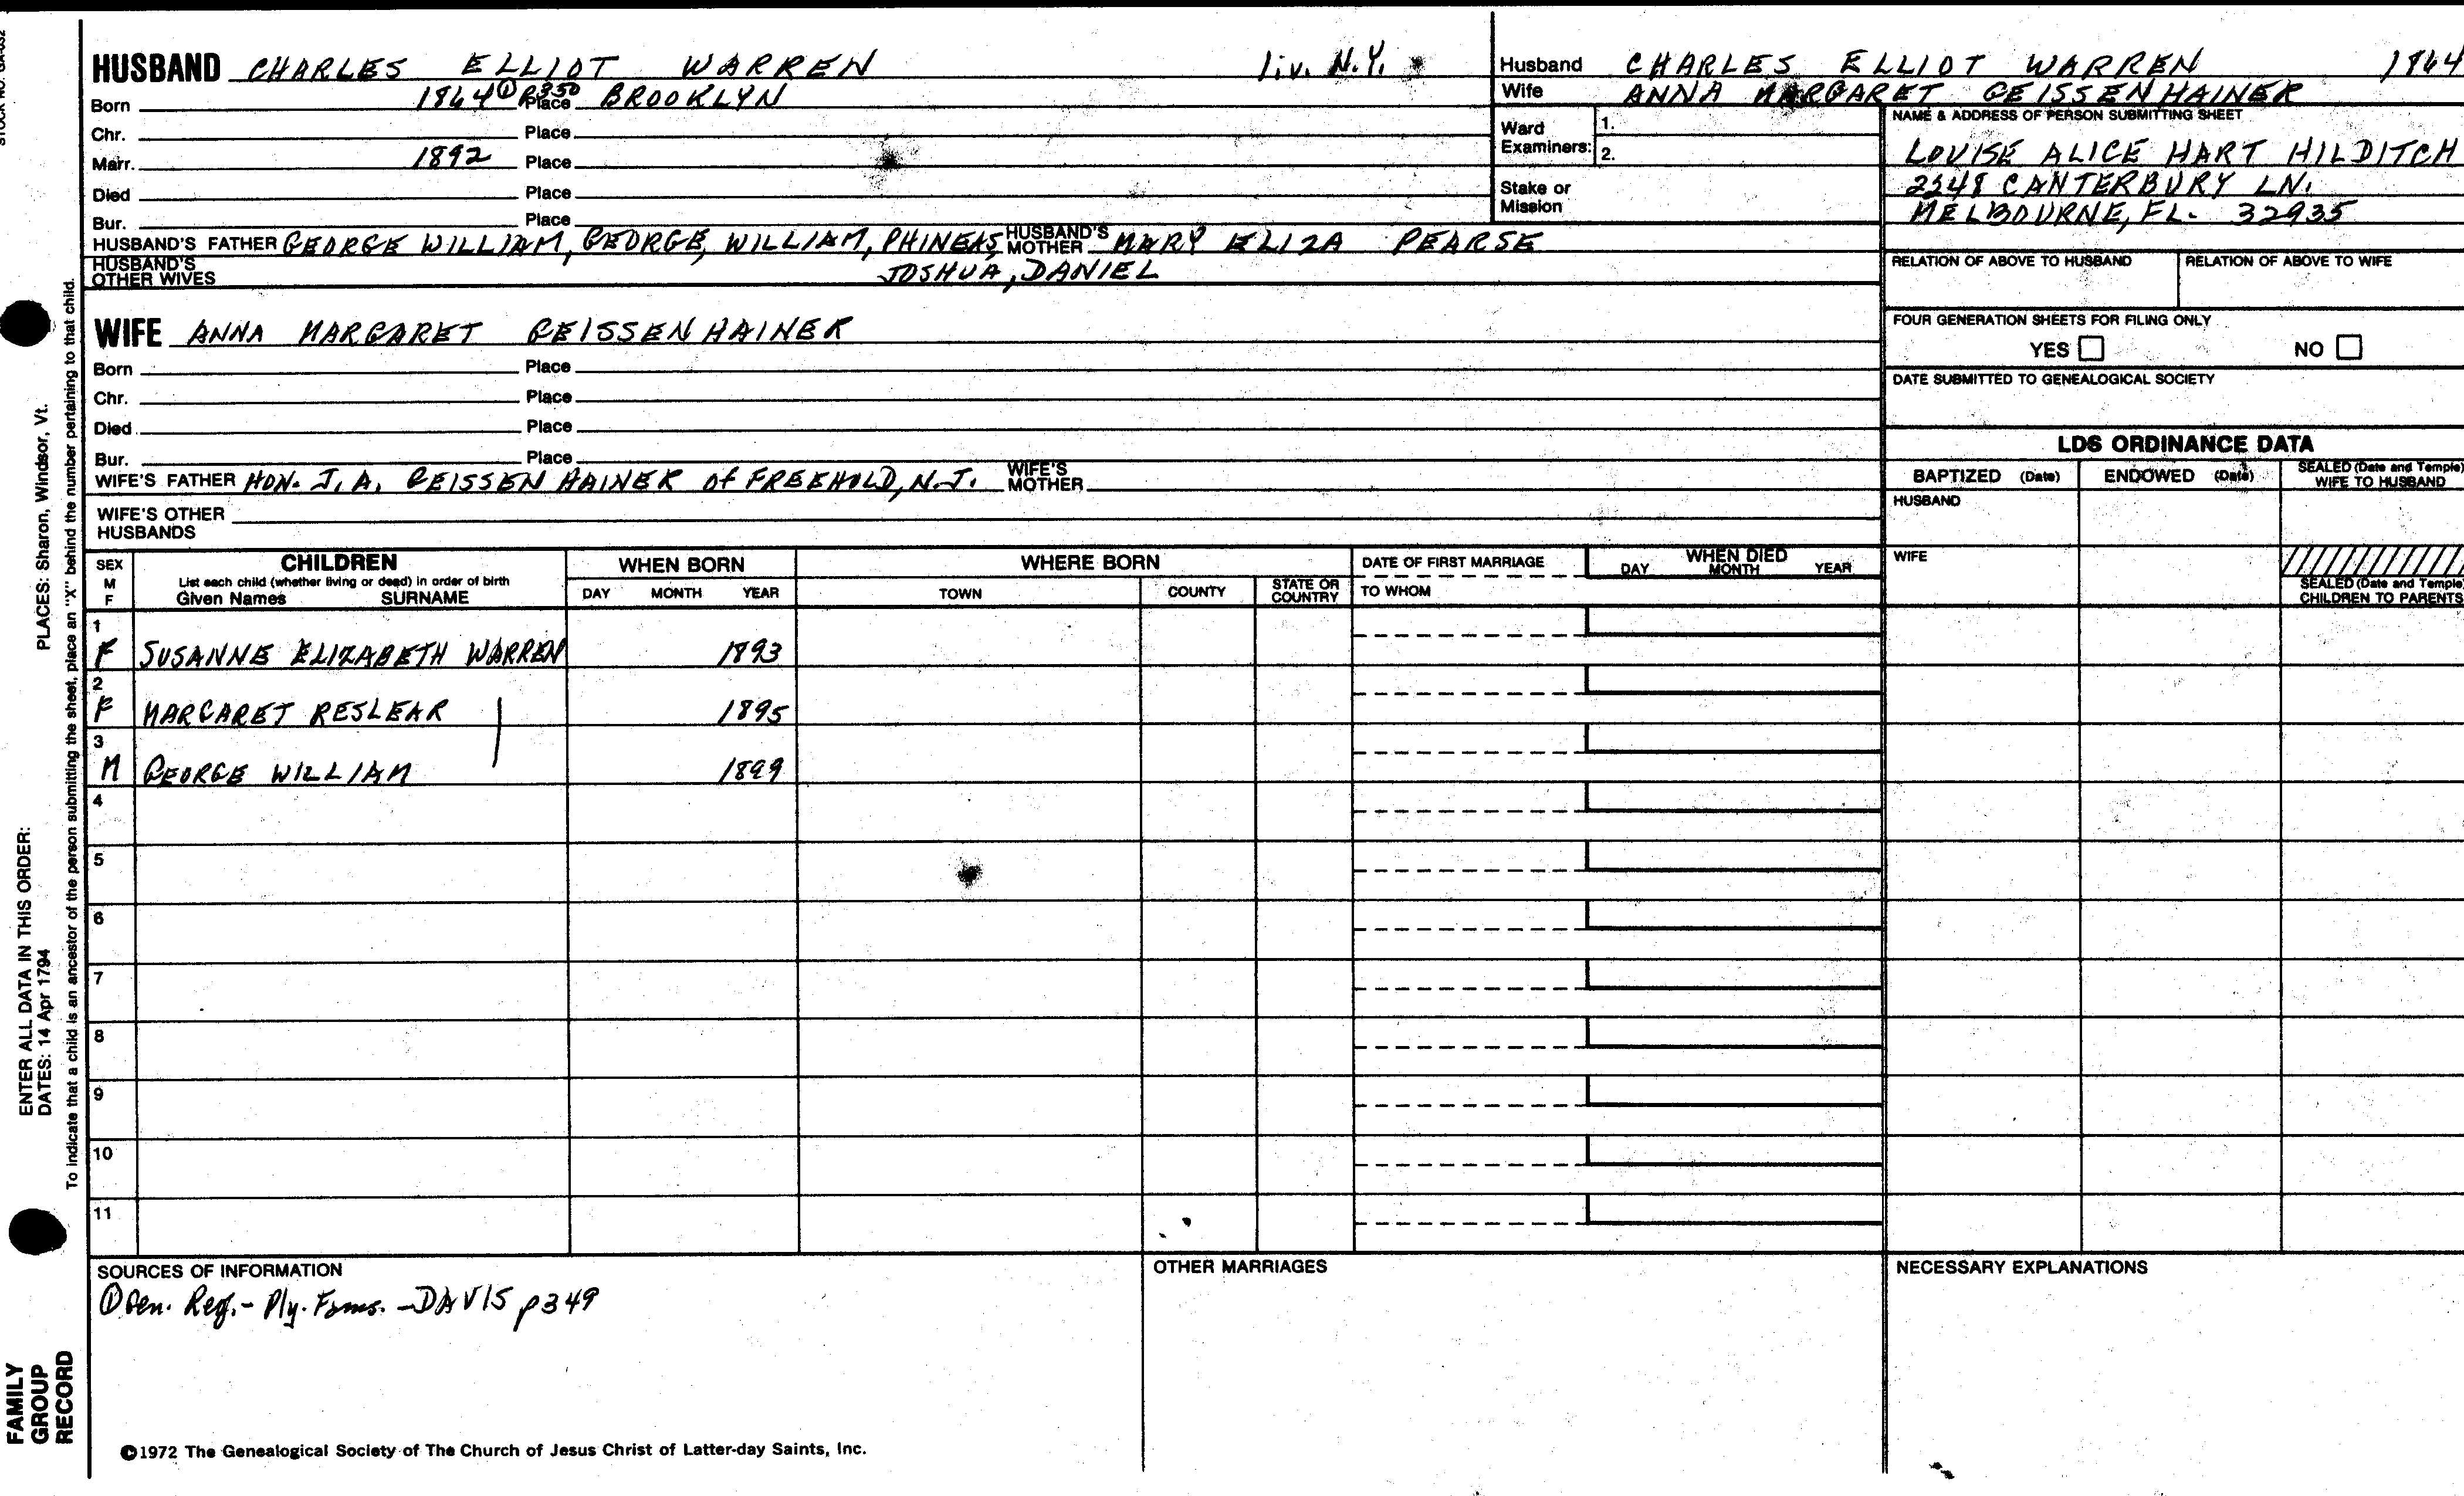 STOCK NO. GA-032
HUSBAND CHARLES ELLIOT WARREN liv. N.Y.
Born 1864 ① P350 Place BROOKLYN
Chr. Place
Marr. 1892 Place
Died Place
Bur. Place
HUSBAND'S FATHER GEORGE WILLIAM, GEORGE, WILLIAM, PHINEAS, HUSBAND'S MOTHER MARY ELIZA PEARSE
JOSHUA, DANIEL
HUSBAND'S OTHER WIVES
WIFE ANNA MARGARET GEISSENHAINER
Born Place
Chr. Place
Died Place
Bur. Place
WIFE'S FATHER HON. J. A. GEISSENHAINER Of FREEHOLD, N.J. WIFE'S MOTHER
WIFE'S OTHER HUSBANDS
Husband CHARLES ELLIOT WARREN 1864
Wife ANNA MARGARET GEISSENHAINER
Ward Examiners: 1.
2.
Stake or Mission
NAME & ADDRESS OF PERSON SUBMITTING SHEET
LOUISE ALICE HART HILDITCH
2548 CANTERBURY LN.
MELBOURNE, FL. 32935
RELATION OF ABOVE TO HUSBAND RELATION OF ABOVE TO WIFE
FOUR GENERATION SHEETS FOR FILING ONLY
YES NO
DATE SUBMITTED TO GENEALOGICAL SOCIETY
LDS ORDINANCE DATA
BAPTIZED (Date) ENDOWED (Date) SEALED (Date and Temple) WIFE TO HUSBAND
HUSBAND
WIFE
SEALED (Date and Temple) CHILDREN TO PARENTS
SEX M F CHILDREN WHEN BORN WHERE BORN DATE OF FIRST MARRIAGE WHEN DIED
List each child (whether living or dead) in order of birth
Given Names SURNAME DAY MONTH YEAR TOWN COUNTY STATE OR COUNTRY TO WHOM DAY MONTH YEAR
1
F SUSANNE ELIZABETH WARREN 1893
2
F MARGARET RESLEAR 1895
3
M GEORGE WILLIAM 1899
4
5
6
7
8
9
10
11
SOURCES OF INFORMATION
① Gen. Reg. - Ply. Fams. - DAVIS p 349
OTHER MARRIAGES
NECESSARY EXPLANATIONS
©1972 The Genealogical Society of The Church of Jesus Christ of Latter-day Saints, Inc.
FAMILY
GROUP
RECORD
ENTER ALL DATA IN THIS ORDER:
DATES: 14 Apr 1794 PLACES: Sharon, Windsor, Vt.
To indicate that a child is an ancestor of the person submitting the sheet, place an "X" behind the number pertaining to that child.